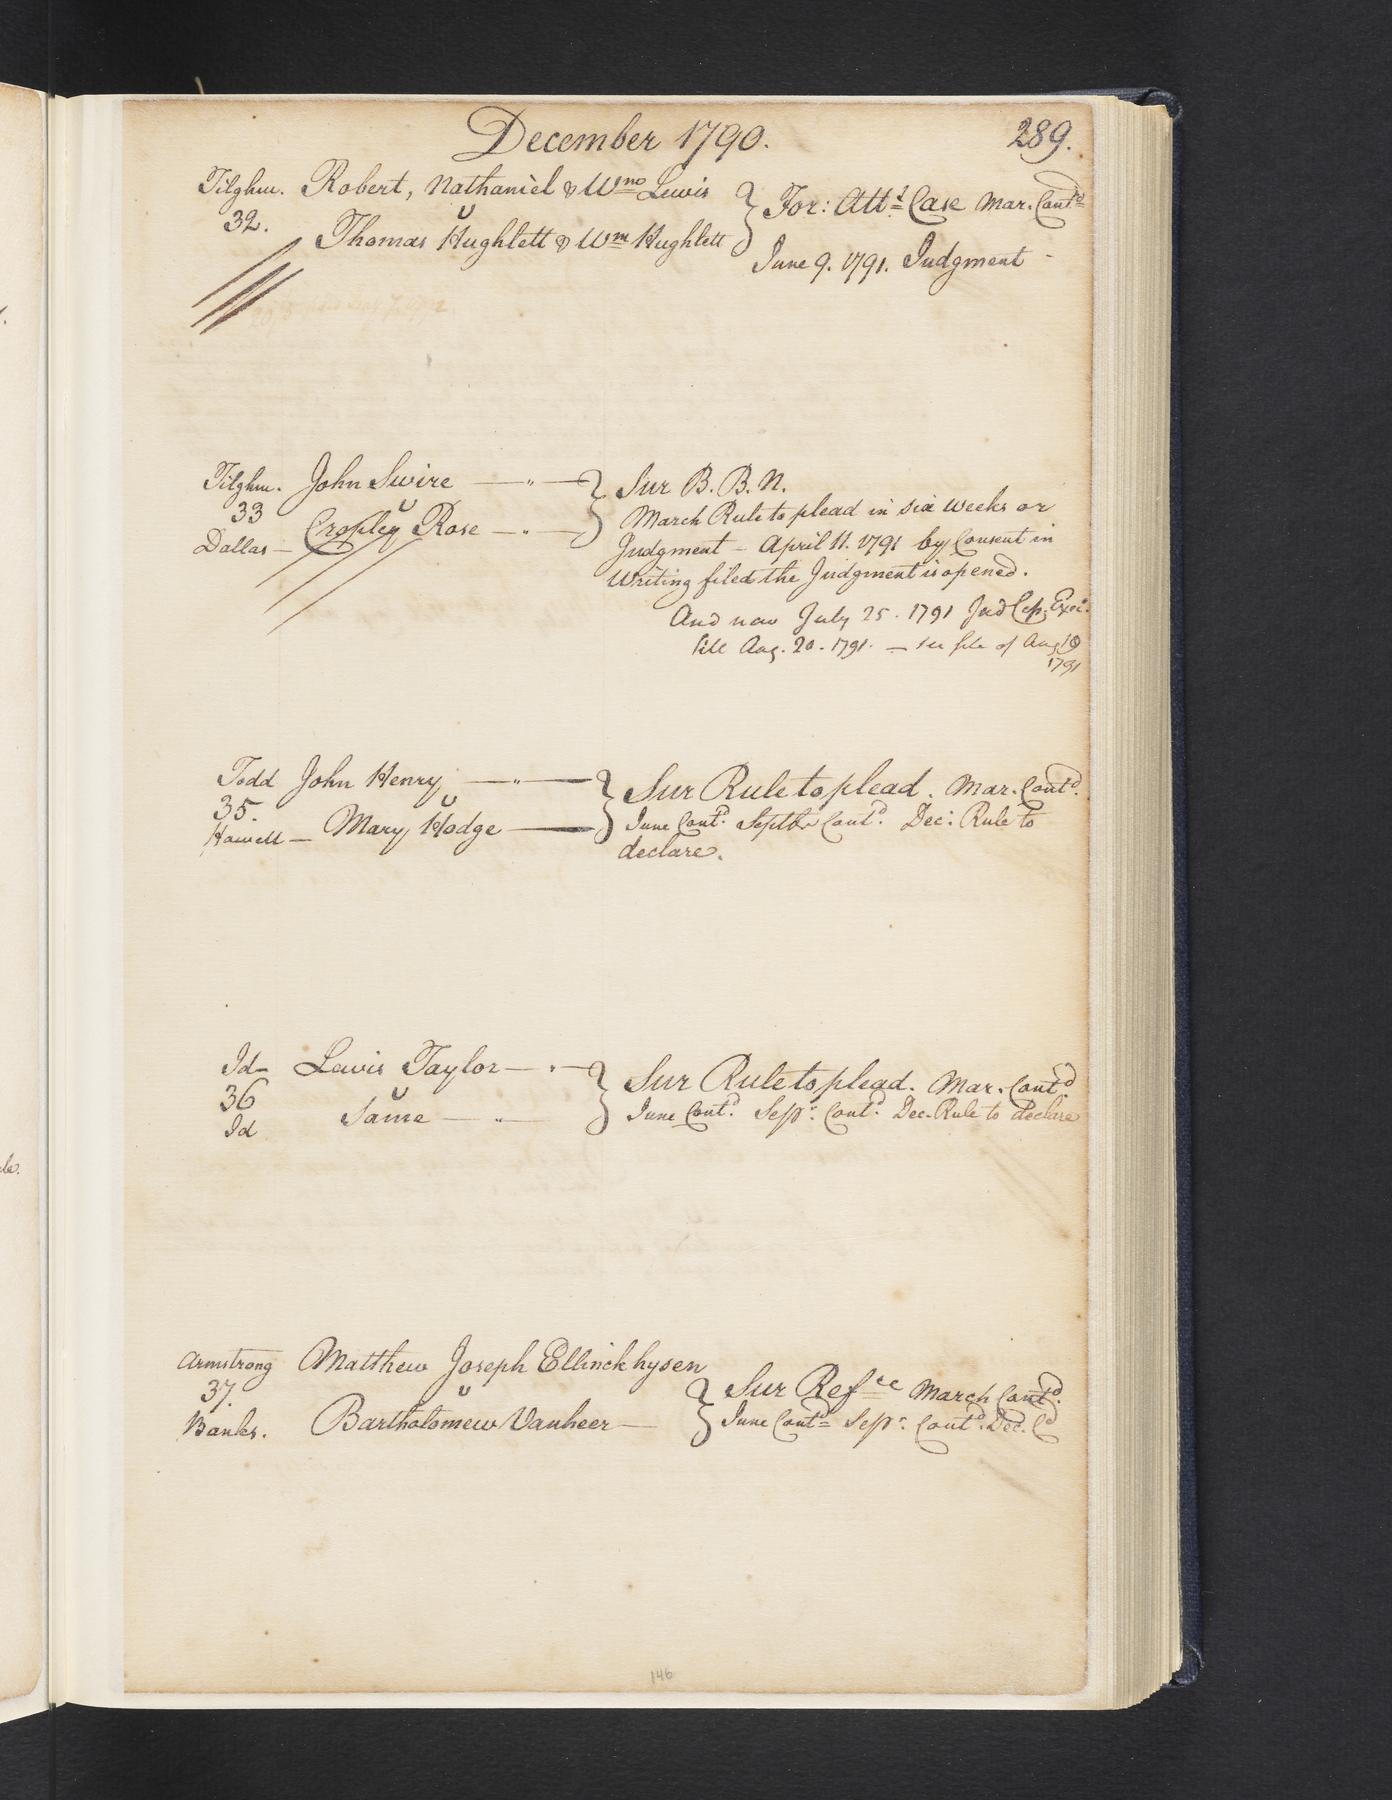 December 1790.
289.
Tilghm. Robert, Nathaniel & Wm Lewis } For: Attt Case Mar. Contd
32. v
Thomas Hughlett & Wm Hughlett
June 9. 1791. Judgment -
Tilghm. John Swire — " — } Sur B. B. N.
33 v
Dallas — Cropley Rose — " —
March Rule to plead in six weeks or
Judgment – April 11. 1791 by Consent in
Writing filed the Judgment is opened.
And now July 25. 1791 Jud Cep. Exec.
till Aug. 20. 1791. — see file of Aug 19
1791
Todd John Henry — " — } Sur Rule to plead. Mar. Contd.
35. v
Howell — Mary Hodge —
June Contd. Septbr Contd. Dec: Rule to
declare.
Id— Lewis Taylor — " — } Sur Rule to plead. Mar. Contd
36 v
Id Same — " —
June Contd. Sepr. Contd. Dec. Rule to declare
Armstrong Matthew Joseph Ellinckhysen } Sur Refce March Contd.
37. v
Banks. Bartholomew Vanheer —
June Contd Sepr. Contd. Dec. Cd
146